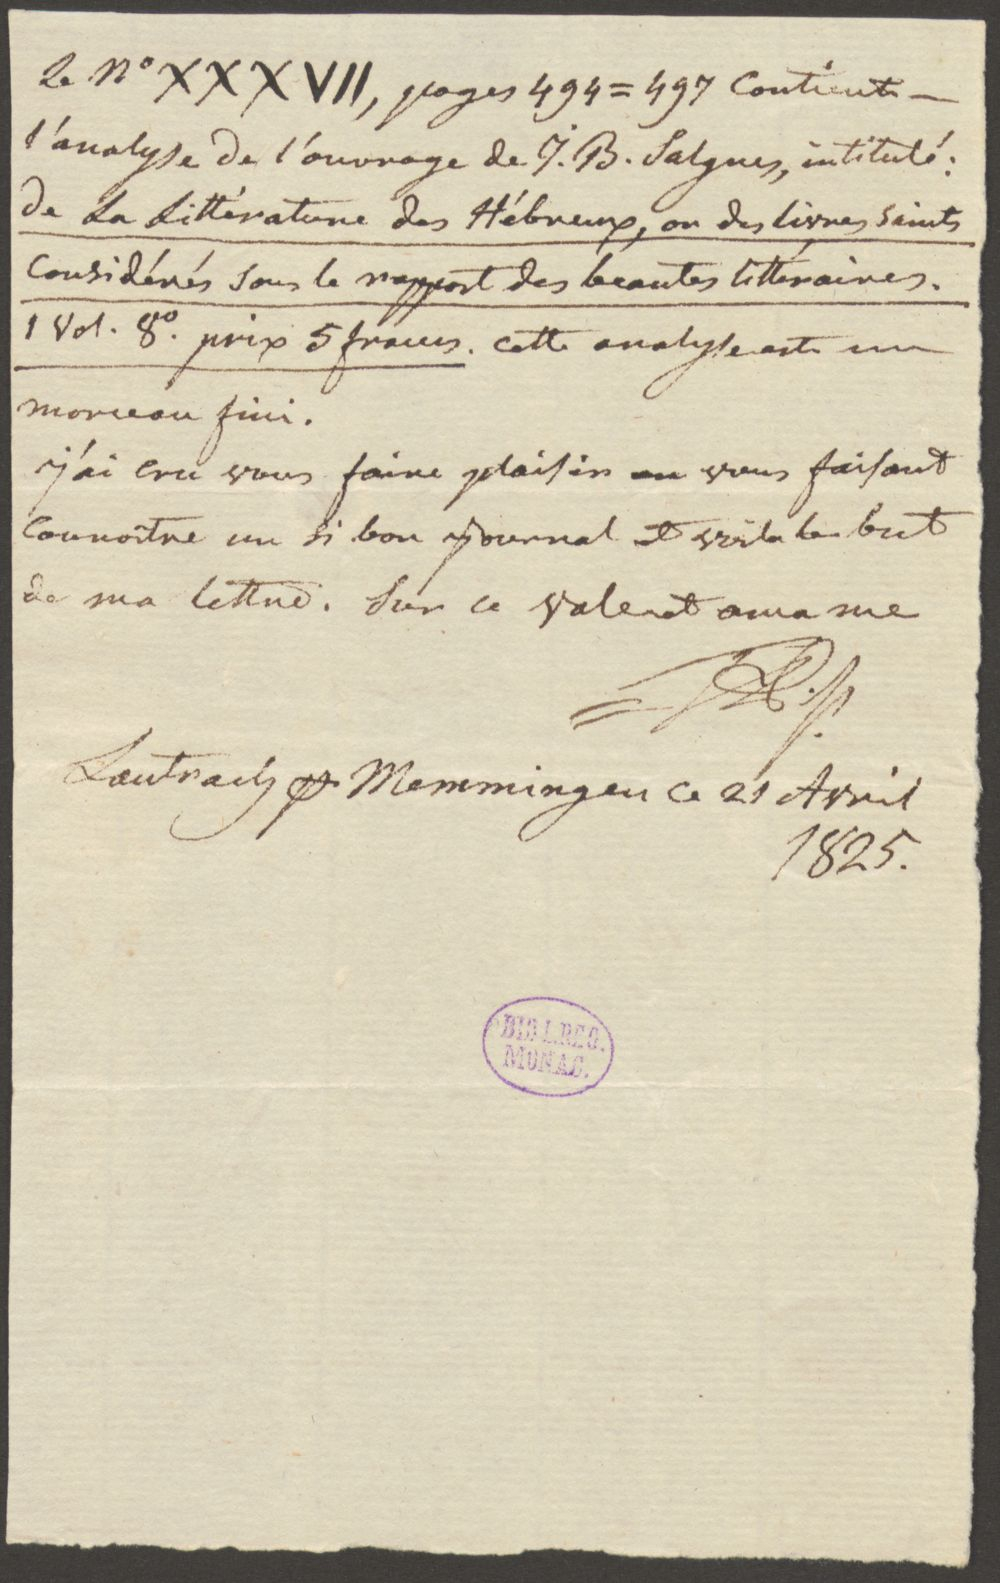 Le N° XXXVII, pages 494=497 contient
l'analyse de l'ouvrage de J. B. Salgues, intitulé:
de La Littérature des Hébreux, ou des livres saints
considérés sous le rapport des beautés littéraires.
1 Vol. 8°. prix 5 francs. cette analyse est un
morceau fini.
j'ai cru vous faire plaisir en vous faisant
connoître un si bon journal et voila le but
de ma lettre. Sur ce vale et ama me
Lautrach Memmingen ce 21 Avril
1825.
BIBL.REG.
MONAC.